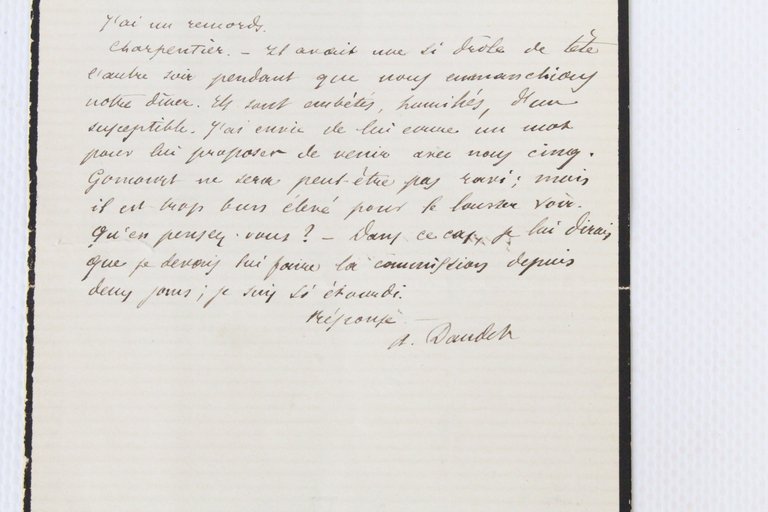 J'ai un remords.
Charpentier. – Il avait une si drôle de tête
l'autre soir pendant que nous emmanchions
notre dîner. Ils sont embêtés, humiliés, d'un
susceptible. J'ai envie de lui écrire un mot
pour lui proposer de venir avec nous cinq.
Goncourt ne sera peut-être pas ravi ; mais
il est trop bien élevé pour le laisser voir.
Qu'en pensez-vous ? – Dans ce cas je lui dirais
que je devais lui faire la commission depuis
deux jours ; je suis si étourdi.
Réponse –
A. Daudet